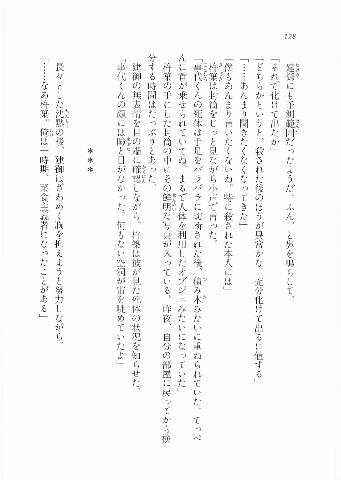 128
建御にも予測範囲だったようだ。ふん、と鼻を鳴らして、
「それで化けて出たか」
「どちらかというと、殺された後のほうが異常かな。充分化けて出るに値する」
「……あんまり聞きたくなくなってきた」
「僕もあんまり言いたくないね。特に殺された本人には」
杵築は封筒をじっと見ながら小声で言った。
「事代くんの死体は手足をバラバラに切断された後、積み木みたいに重ねられていた。てっぺ
んに首が乗せられていてね。まるで人体を利用したオブジェみたいになっていた」
杵築の手にした封筒の中にその鮮明な写真が入っている。昨夜、自分の部屋に戻ってから検
分する時間はたっぷりとあった。
建御の無表情を目の端に確認しながら、杵築は彼が見た死体の状況を知らせた。
「事代くんの顔には瞼と目がなかった。何もない空洞が宙を眺めていたよ」
＊＊＊
長々とした沈黙の後、建御はざわめく胸を抑えようと努力しながら、
「……なあ杵築、俺は一時期、菜食主義者になったことがある」